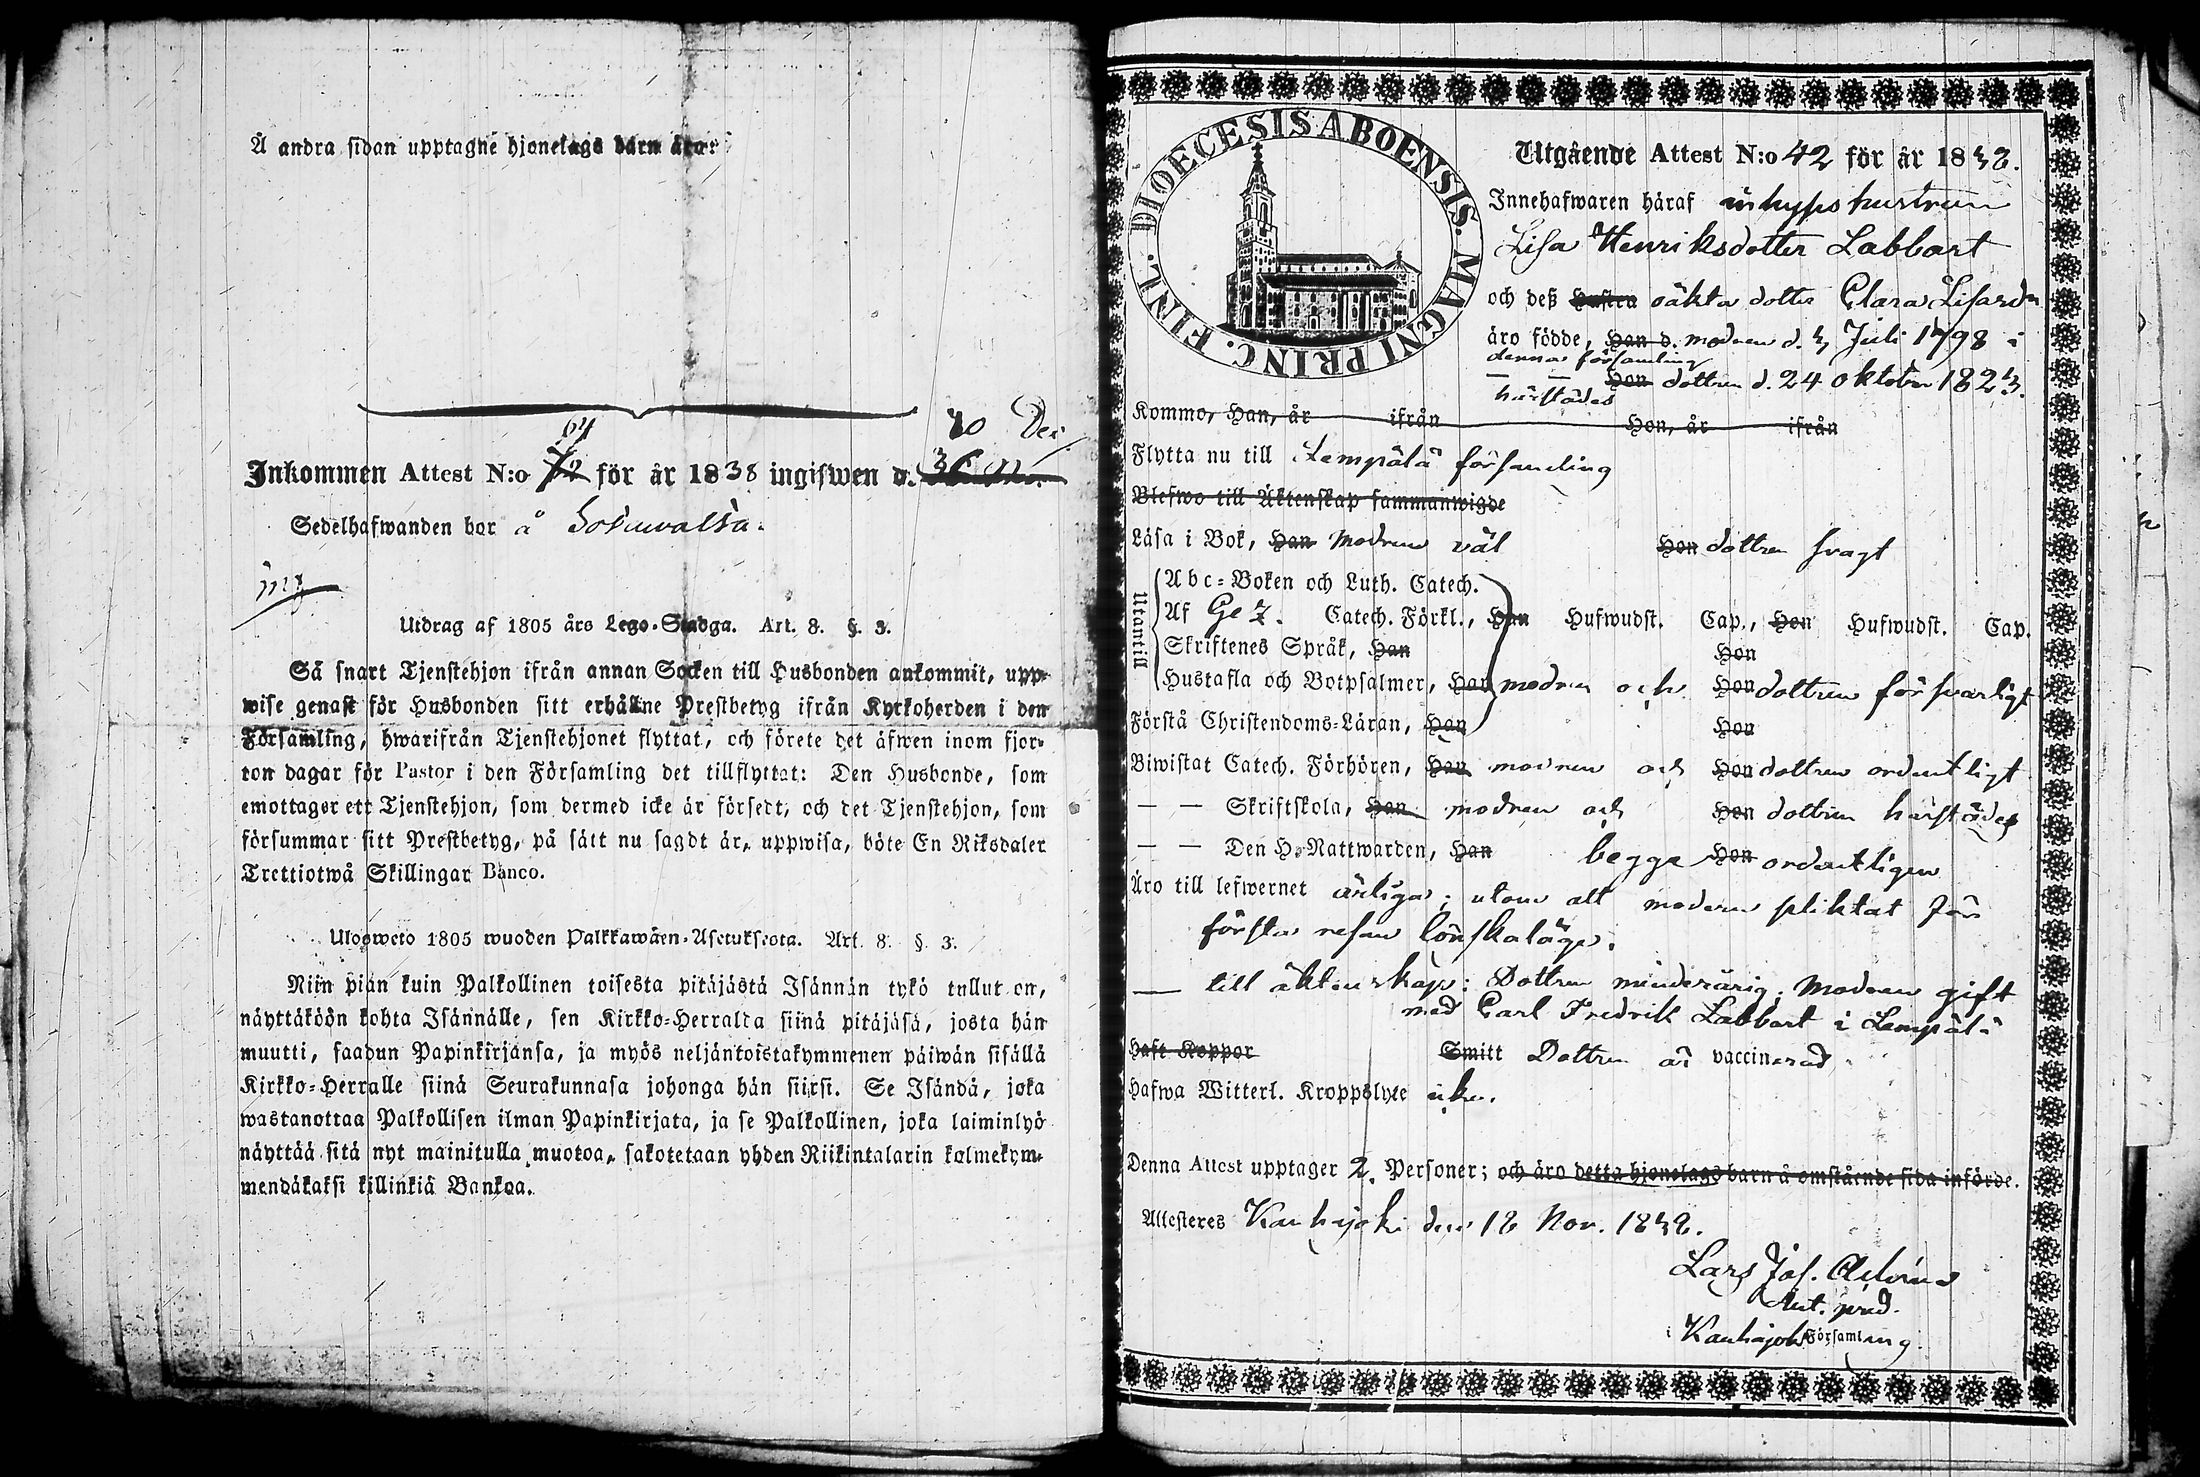 Å andra sidan upptagne hjonelags barn äro:
64
10 Dec
Inkommen Attest N:o för år 1838 ingifwen d.
Sedelhafwanden bor å
Utdrag af 1805 års Lego-Stadga. Art. 8. §. 3.
Så snart Tjenstehjon ifrån annan Socken till Husbonden ankommit, upp-
wise genast för Husbonden sitt erhållne Prestbetyg ifrån Kyrkoherden i den
Församling, hwarifrån Tjenstehjonet flyttat, och förete det äfwen inom fjor-
ton dagar för Pastor i den Församling det tillflyttat: Den Husbonde, som
emottager ett Tjenstehjon, som dermed icke är försedt, och det Tjenstehjon, som
försummar sitt Prestbetyg, på sätt nu sagdt är, uppwisa, böte En Riksdaler
Trettiotwå Skillingar Banco.
Ulosweto 1805 wuoden Palkkawäen-Asetuksesta. Art. 8. §. 3.
Niin pian kuin Palkollinen toisesta pitäjästä Isännän tykö tullut on,
näyttäköön kohta Isännälle, sen Kirkko-Herralta siinä pitäjäsä, josta hän
muutti, saadun Papinkirjansa, ja myös neljäntoistakymmenen päiwän sisällä
Kirkko-Herralle siinä Seurakunnasa johonga hän siirsi. Se Isändä, joka
wastanottaa Palkollisen ilman Papinkirjata, ja se Palkollinen, joka laiminlyö
näyttää sitä nyt mainitulla muotoa, sakotetaan yhden Riikintalarin kolmekym-
mendäkaksi killinkiä Bankoa.
DIOECESIS ABOENSIS. MAGNI PRINC. FINL.
Utgående Attest N:o 42 för år 1838.
Innehafwaren häraf inhyses hustrun
Lisa Henriksdotter Labbart
och deß Hustru oäkta dotter Clara Lisasdr
äro födde, Han d. modren d. 3 Juli 1798 i
denna församling
Hon dottren d. 24 oktober 1823.
härstädes
Kommo, Han, år ifrån Hon, år ifrån
Flytta nu till Lempälä församling
Blefwo till Äktenskap sammanwigde
Läsa i Bok, Han Modren väl Hon dottren svagt
Utantill
Abc-Boken och Luth. Catech.
Af Catech. Förkl., Han Hufwudst. Cap., Hon Hufwudst. Cap.
Skriftenes Språk, Han Hon
Hustafla och Botpsalmer, Han modren och Hon dottren försvarligt
Förstå Christendoms-Läran, Han Hon
Biwistat Catech. Förhören, Han modren och Hon dottren ordentligt
— — Skriftskola, Han modren och Hon dottren härstädes
— — Den H. Nattwarden, Han begge Hon ordentligen
Äro till lefwernet ärliga; utom att modren pliktat för
första resan lönskaläge.
— till äktenskap: Dottren minderårig. Modren gift
med Carl Fredrik Labbart i Lempälä
Haft Koppor Smitt Dottren är vaccinerad
Hafwa Witterl. Kroppslyte icke.
Denna Attest upptager 2. Personer; och äro detta hjonelags barn å omstående sida införde.
Attesteres Kauhajoki den 18 Nov. 1838.
Lars Jos.
pred.
i Kauhajoki Församling.